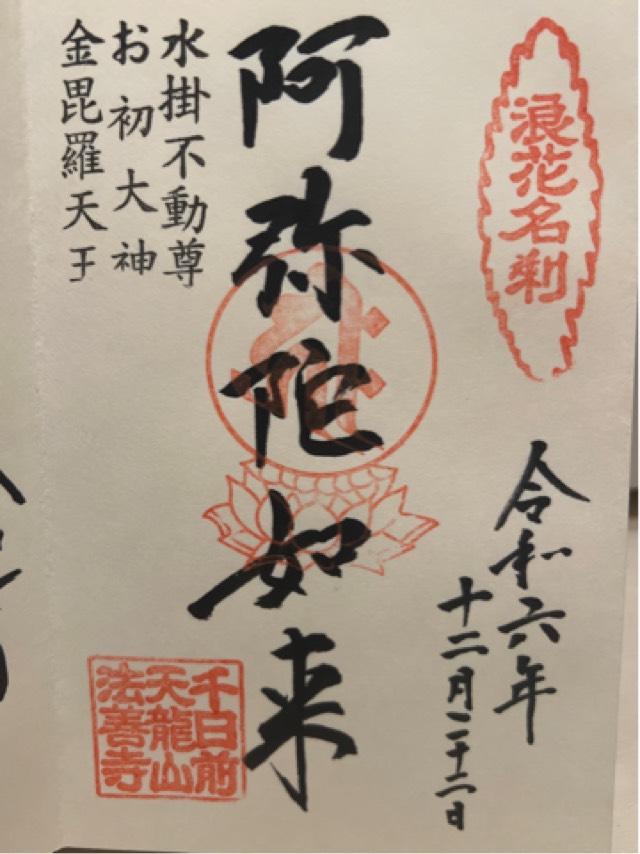 浪花名刹
令和六年
十二月二十二日
阿弥陀如来
水掛不動尊
お初大神
金毘羅天王
千日前
天龍山
法善寺